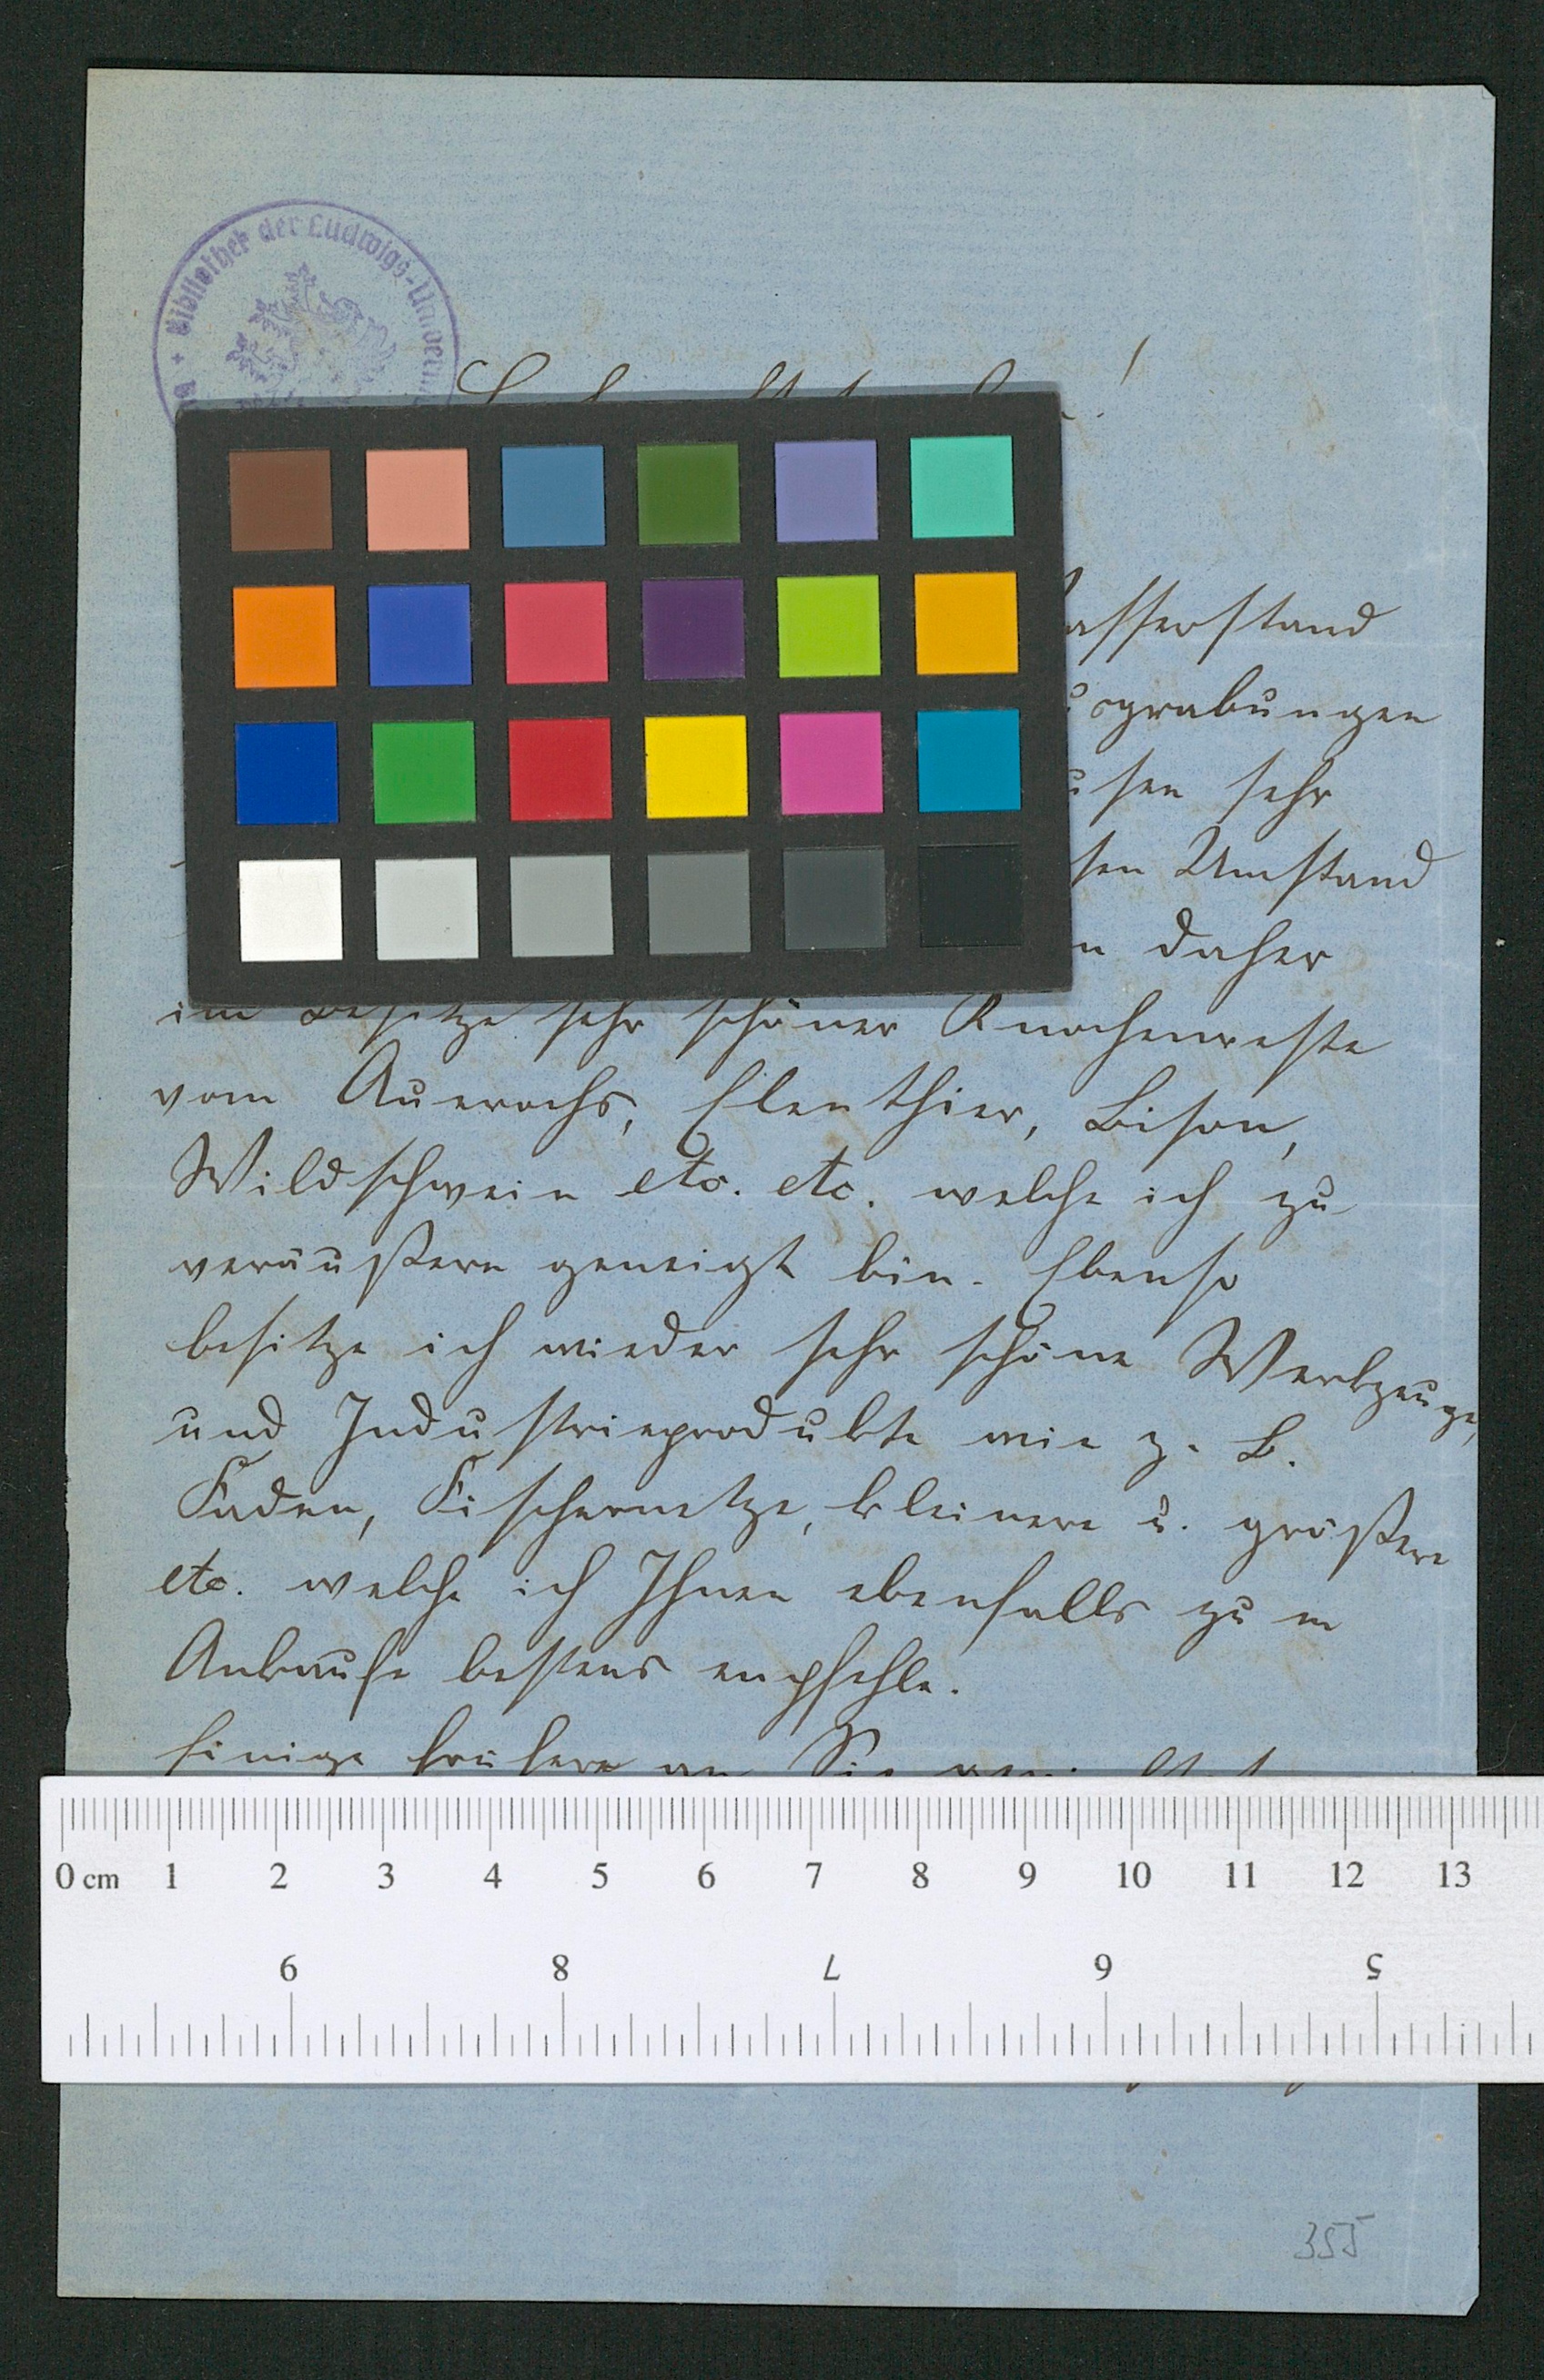 Bibliothek der Ludwigs-Univer
!
asserstand
usgrabungen
sehr
sen Umstand
n daher
im Besitze sehr schöner Knochenreste
vom Auerochs, Elenthier, Bison,
Wildschwein etc. etc. welche ich zu
veräußern geneigt bin. Ebenso
besitze ich wieder sehr schöne Werkzeuge,
und Industrieprodukte wie z. B.
Faden, Fischernetze, kleinere u. größere
etc. welche ich Ihnen ebenfalls zum
Ankaufe bestens empfehle.
Einige frühere an Sie
0 cm 1 2 3 4 5 6 7 8 9 10 11 12 13
9 8 7 6 5
355